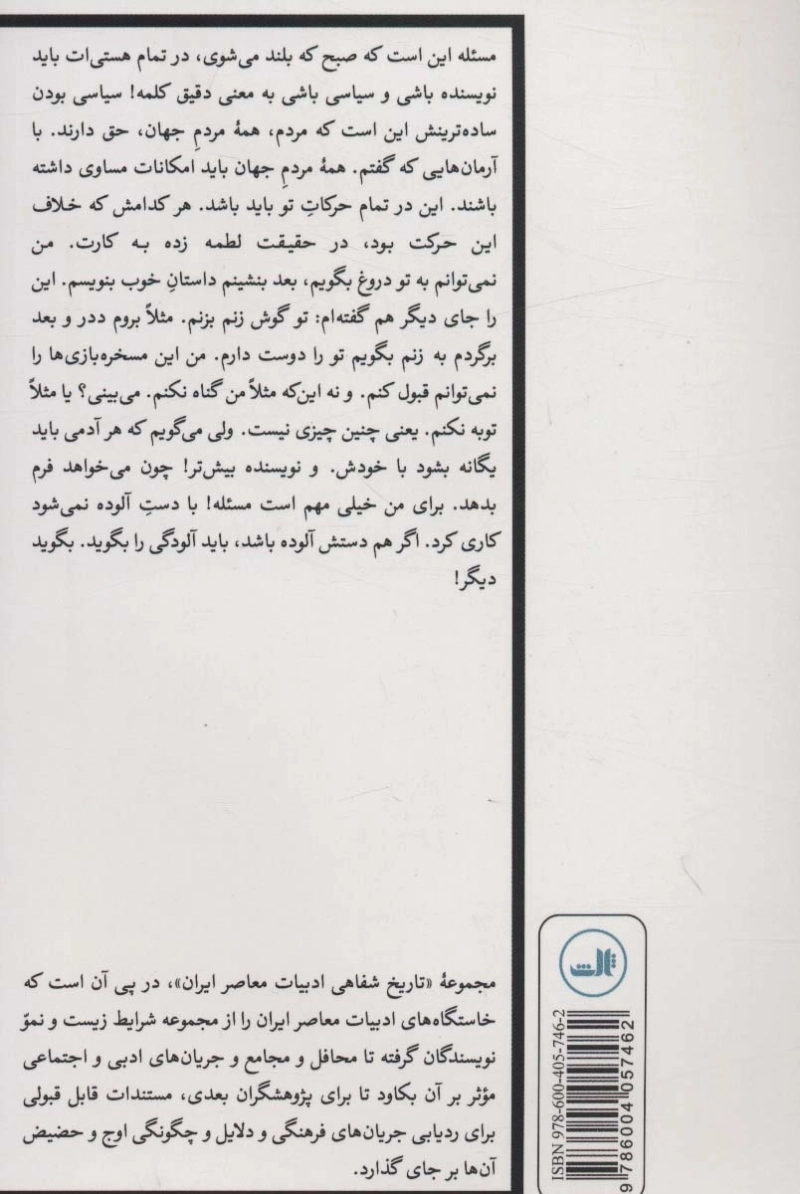 مسئله این است که صبح که بلند می‌شوی، در تمام هستی‌ات باید
نویسنده باشی و سیاسی باشی به معنی دقیق کلمه! سیاسی بودن
ساده‌ترینش این است که مردم، همهٔ مردمِ جهان، حق دارند. با
آرمان‌هایی که گفتم. همهٔ مردمِ جهان باید امکانات مساوی داشته
باشند. این در تمام حرکاتِ تو باید باشد. هر کدامش که خلاف
این حرکت بود، در حقیقت لطمه زده به کارت. من
نمی‌توانم به تو دروغ بگویم، بعد بنشینم داستانِ خوب بنویسم. این
را جای دیگر هم گفته‌ام: تو گوش زنم بزنم. مثلاً بروم ددر و بعد
برگردم به زنم بگویم تو را دوست دارم. من این مسخره‌بازی‌ها را
نمی‌توانم قبول کنم. و نه این‌که مثلاً من گناه نکنم. می‌بینی؟ یا مثلاً
توبه نکنم. یعنی چنین چیزی نیست. ولی می‌گویم که هر آدمی باید
یگانه بشود با خودش. و نویسنده بیش‌تر! چون می‌خواهد فرم
بدهد. برای من خیلی مهم است مسئله! با دستِ آلوده نمی‌شود
کاری کرد. اگر هم دستش آلوده باشد، باید آلودگی را بگوید. بگوید
دیگر!
مجموعهٔ «تاریخ شفاهی ادبیات معاصر ایران»، در پی آن است که
خاستگاه‌های ادبیات معاصر ایران را از مجموعه شرایط زیست و نموّ
نویسندگان گرفته تا محافل و مجامع و جریان‌های ادبی و اجتماعی
مؤثر بر آن بکاود تا برای پژوهشگران بعدی، مستندات قابل قبولی
برای ردیابی جریان‌های فرهنگی و دلایل و چگونگی اوج و حضیض
آن‌ها بر جای گذارد.
ثالث
ISBN 978-600-405-746-2
9 786004 057462